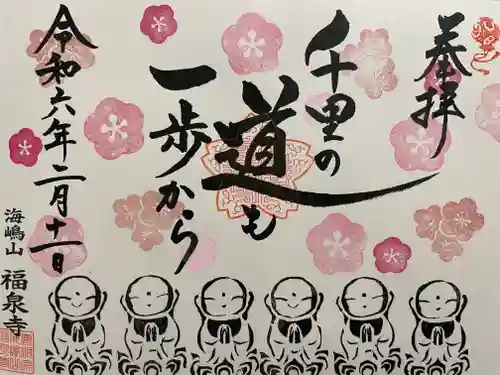 奉拝
千里の
道も
一歩から
令和六年二月十一日
海嶋山
福泉寺